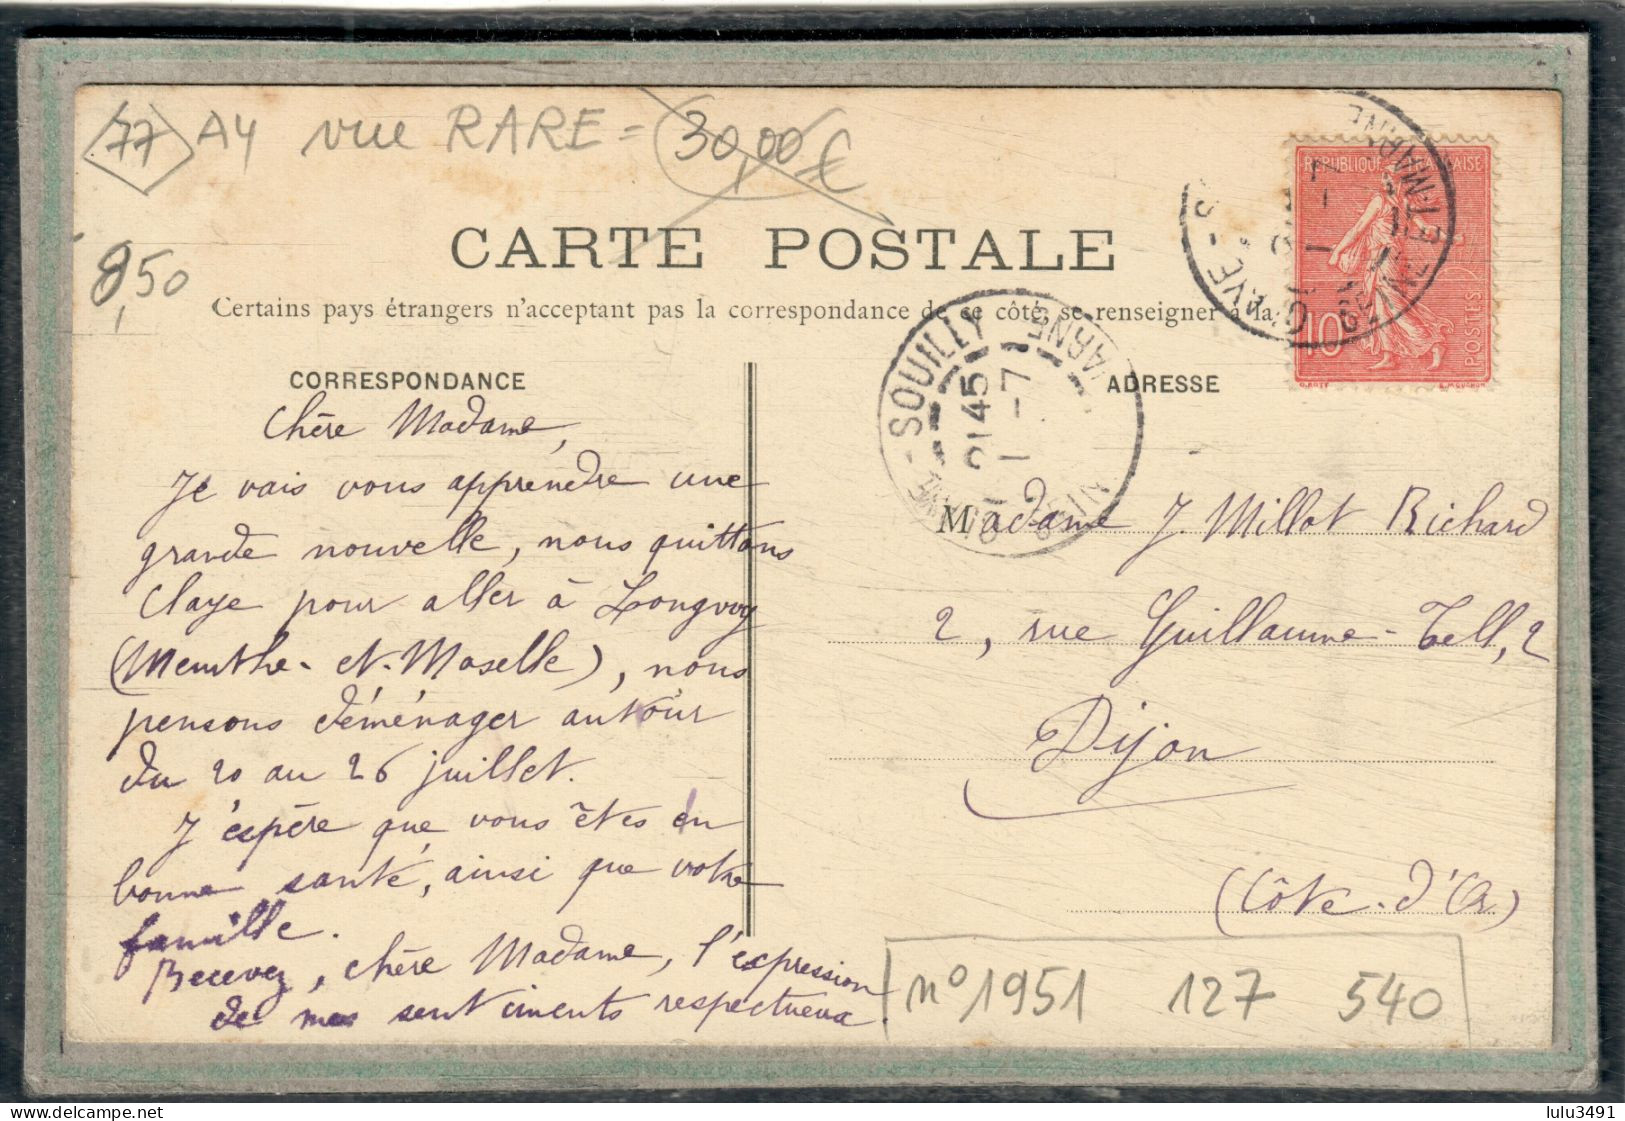 77 A4 vue RARE = 30,00 €
8,50
CARTE POSTALE
Certains pays étrangers n'acceptant pas la correspondance de ce côté, se renseigner à la
CORRESPONDANCE
Chère Madame,
Je vais vous apprendre une
grande nouvelle, nous quittons
Claye pour aller à Longwy
(Meurthe-et-Moselle), nous
pensons déménager autour
du 20 au 26 juillet.
J'espère que vous êtes en
bonne santé, ainsi que votre
famille.
Recevez, chère Madame, l'expression
de mes sentiments respectueux.
ADRESSE
Madame J. Millot Richard
2, rue Guillaume-Tell, 2
Dijon
(Côte-d'Or)
REPUBLIQUE FRANÇAISE
10
POSTES
O.ROTY
E.MOUCHON
CLAYE-SOUILLY
21 45
1 -7
SEINE-ET-MARNE
n° 1951 127 540
lulu3491